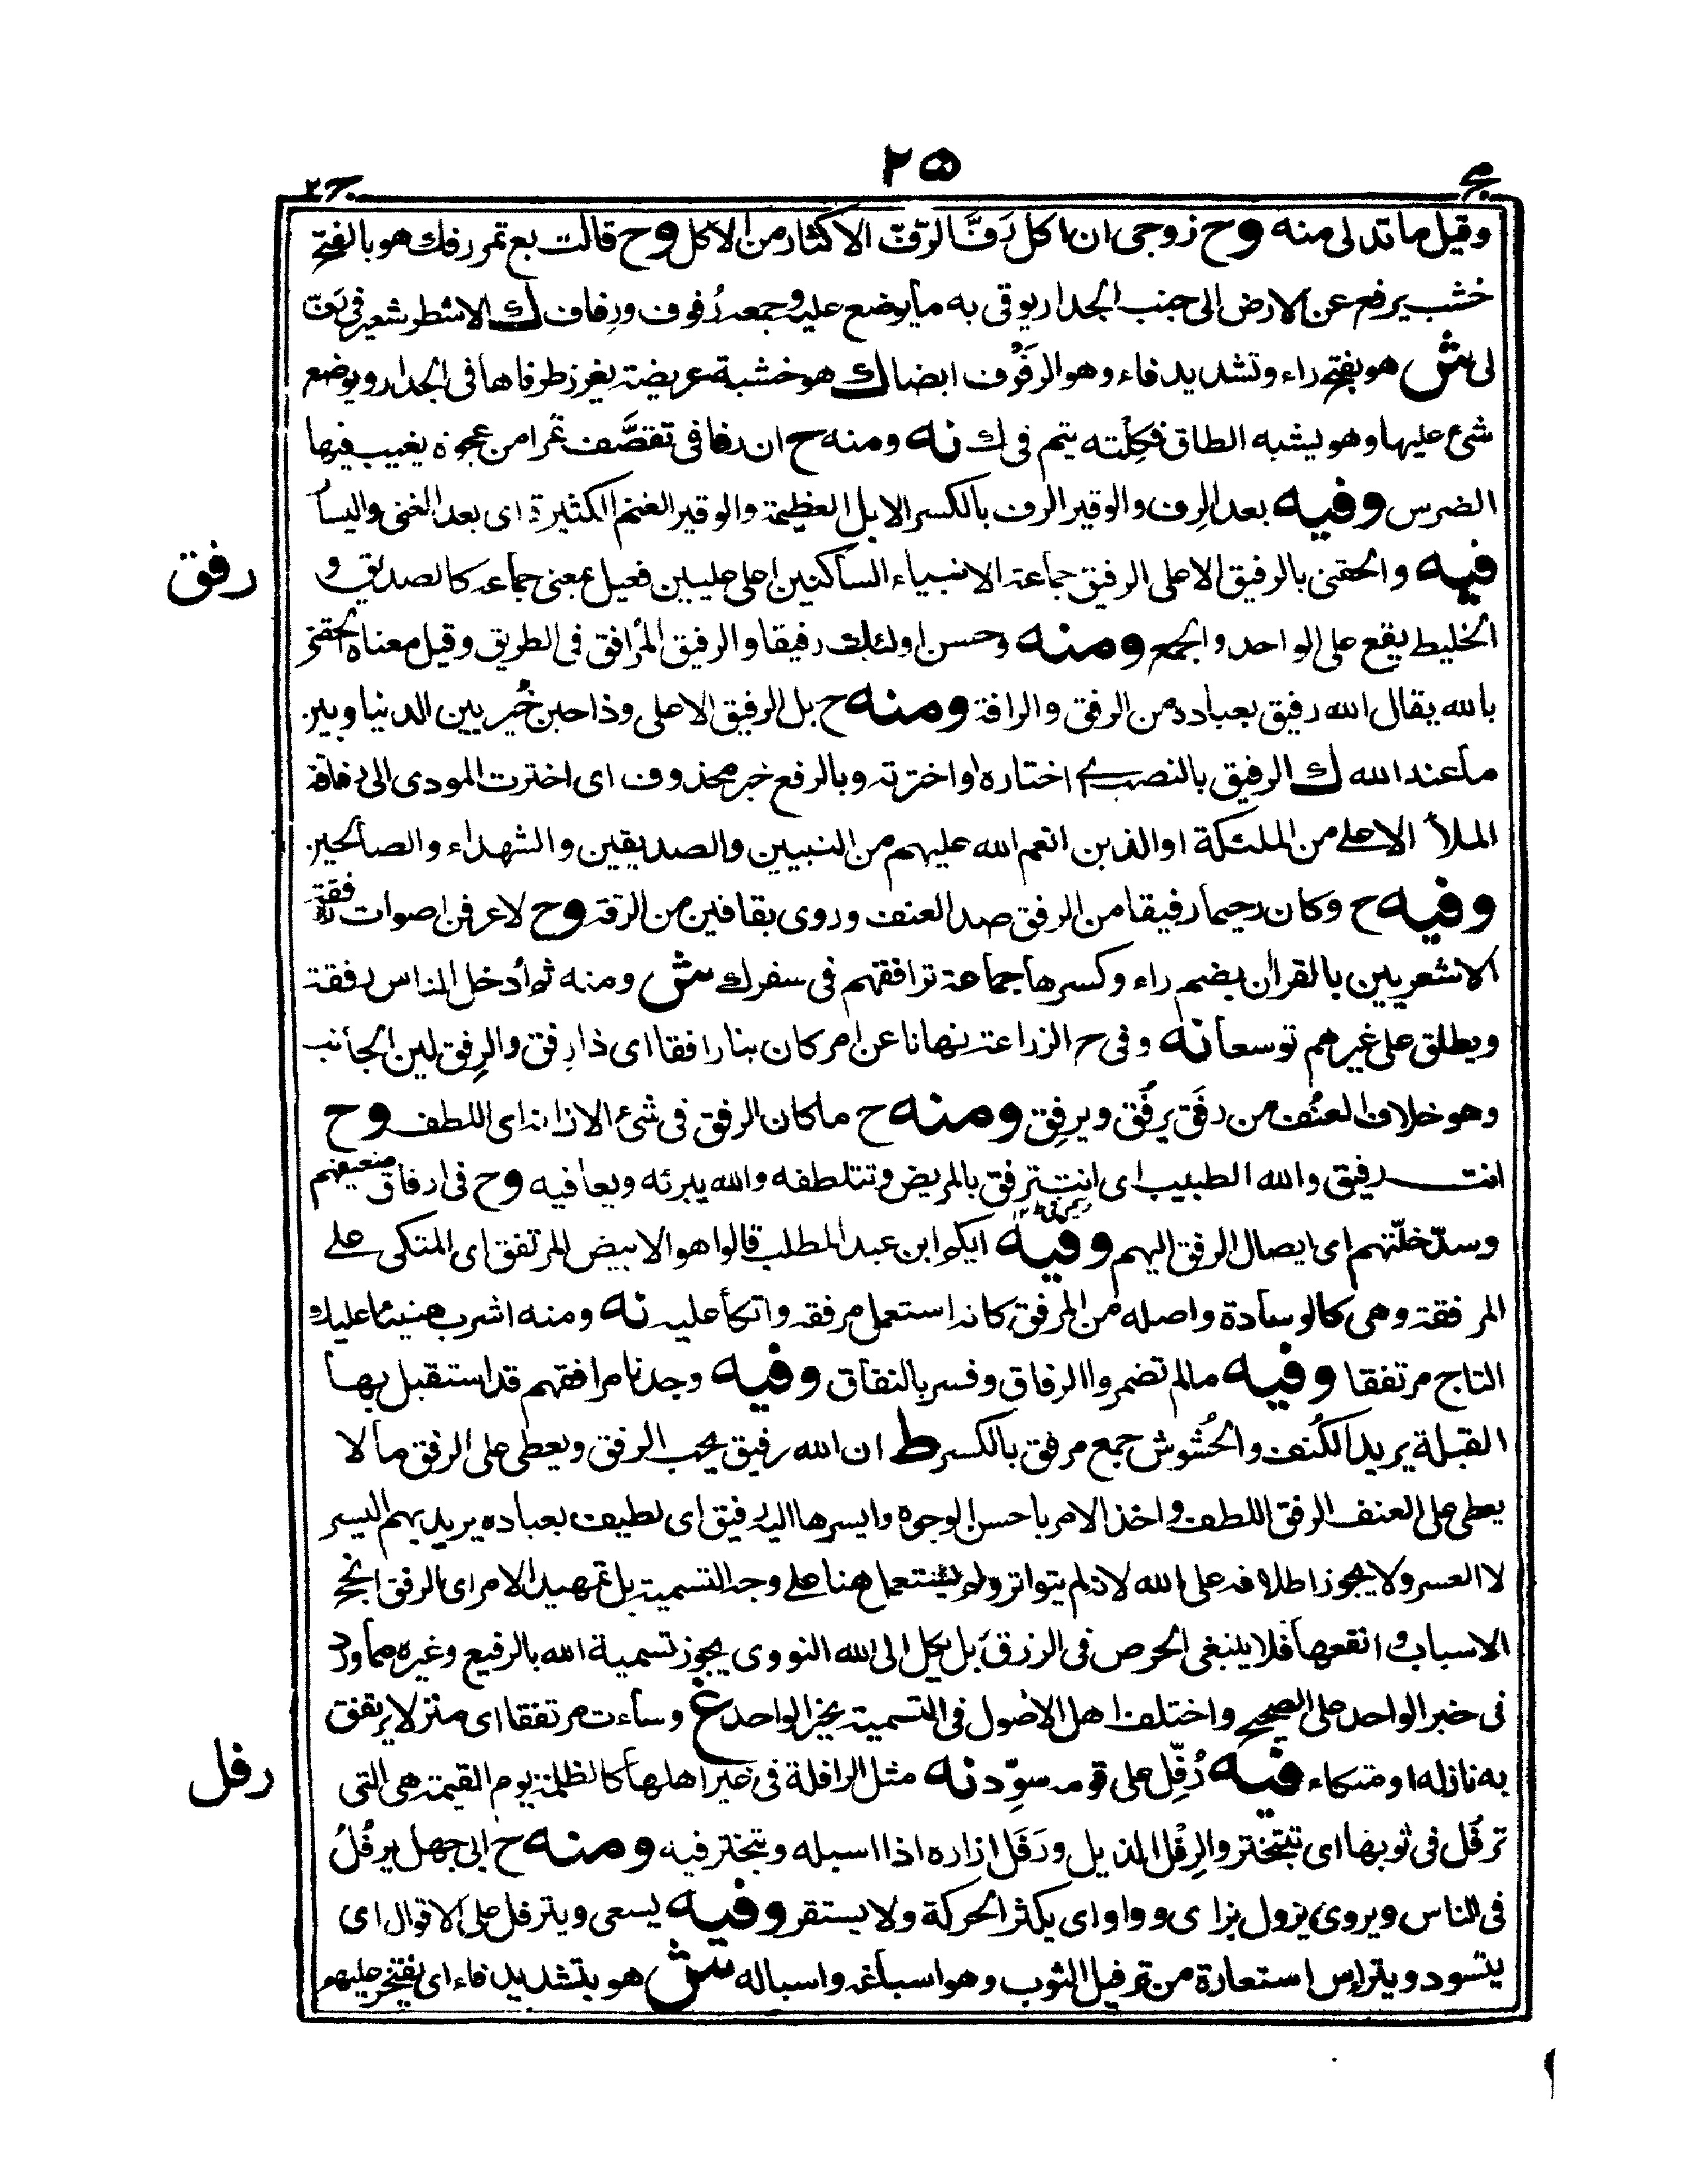 ٢٥
وقيل ما تدلى منه وح زوجى ان اكل رَفَّ الرّفّ الاكثار من الاكل وح قالت بع تمر رفك هو بالفتح
خشب يرفع عن الارض الى جنب الجدار يوقى به ما يوضع عليه وجمعه رُفوف ورِفاف ك الا شطر شعير فى رَفّ
لى ش هو بفتح راء وتشديد فاء وهو الرَفْرف ايضا ك هو خشبة عريضة يغرز طرفاها فى الجدار ويوضع
شئ عليها وهو يشبه الطاق فكِلْته يتم فى ك نه ومنه ح ان رفا فى تقصَّف تمرا من عجوة يغيب فيها
الضرس وفيه بعد الرِف والوقير الرف بالكسر الابل العظيمة والوقير الغنم الكثيرة اى بعد الغنى واليسا
رفق
فيه والحقنى بالرفيق الاعلى الرفيق جماعة الانبياء الساكنين اعلى عليين فعيل بمعنى جماعه كالصديق و
الخليط يقع على الواحد والجمع ومنه وحسن اولئك رفيقا والرفيق المُرافق فى الطريق وقيل معناه الحقنى
بالله يقال الله رفيق بعباده من الرفق والرافة ومنه ح بل الرفيق الاعلى وذا حين خُير بين الدنيا وبين
ما عند الله ك الرفيق بالنصب اى اختاره او اخترته وبالرفع خبر محذوف اى اخترت المودى الى رفاقة
الملأ الاعلى من الملئكة او الذين انعم الله عليهم من النبيين والصديقين والشهداء والصالحين
وفيه ح وكان رحيما رفيقا من الرفق ضد العنف وروى بقافين من الرقة وح لاعرفن اصوات رفقة
الاشعريين بالقران بضم راء وكسرها جماعة ترافقهم فى سفرك ش ومنه ثم أدخل الناس رفقة
ويطلق على غيرهم توسعا نه وفى ح الزراعة نهانا عن امر كان بنا رافقا اى ذا رفق والرِفق لين الجانب
وهو خلاف العنُف من رفَق يرفُق ويرفِق ومنه ح ما كان الرفق فى شئ الا زانه اى اللطف وح
انت رفيق والله الطبيب اى انت ترفق بالمريض وتتلطفه والله يبرئه ويعافيه وح فى ارفاق ضعيفهم
وسدّ خلّتهم اى ايصال الرفق اليهم وفيه ايكم ابن عبد المطلب قالوا هو الابيض المرتفق اى المتكى على
المرفقة وهى كالوسادة واصله من المرفق كانه استعمل مرفقه واتكأ عليه نه ومنه اشرب هنيئا عليك
التاج مرتفقا وفيه ما لم تضمروا الرفاق وفسر بالنفاق وفيه وجدنا مرافقهم قد استقبل بها
القبلة يريد الكُنف والحُشُوش جمع مرفق بالكسر ط ان الله رفيق يحب الرفق ويعطى على الرفق ما لا
يعطى على العنف الرفق اللطف واخذ الامر باحسن الوجوه وايسرها الله رفيق اى لطيف بعباده يريد بهم اليسر
لا العسر ولا يجوز اطلاقه على الله لانه لم يتواتر ولم يستعمل هنا على وجه التسمية بل تمهيد الامر اى الرفق انجح
الاسباب وانفعها فلا ينبغى الحرص فى الرزق بل يكل الى الله النووى يجوز تسمية الله بالرفيع وغيره مما ورد
فى خبر الواحد على الصحيح واختلف اهل الاصول فى التسمية بخبر الواحد غ وساءت مرتفقا اى منزلا يرتفق
رفل
به نازله او متكاء فيه رُفِّل على قومه سوّد نه مثل الرافلة فى غير اهلها كالظلمة يوم القيمة هى التى
ترفُل فى ثوبها اى تتبختر والرِفْل الذيل ورَفَل ازاره اذا اسبله وتبختر فيه ومنه ح ابى جهل يرفُلُ
فى الناس ويروى يزول بزاى وواو اى يكثر الحركة ولا يستقر وفيه يسعى ويترفل على الاقوال اى
يتسود ويتراس استعارة من ترفيل الثوب وهو اسباغه واسباله ش هو بتشديد فاء اى يفتخر عليهم